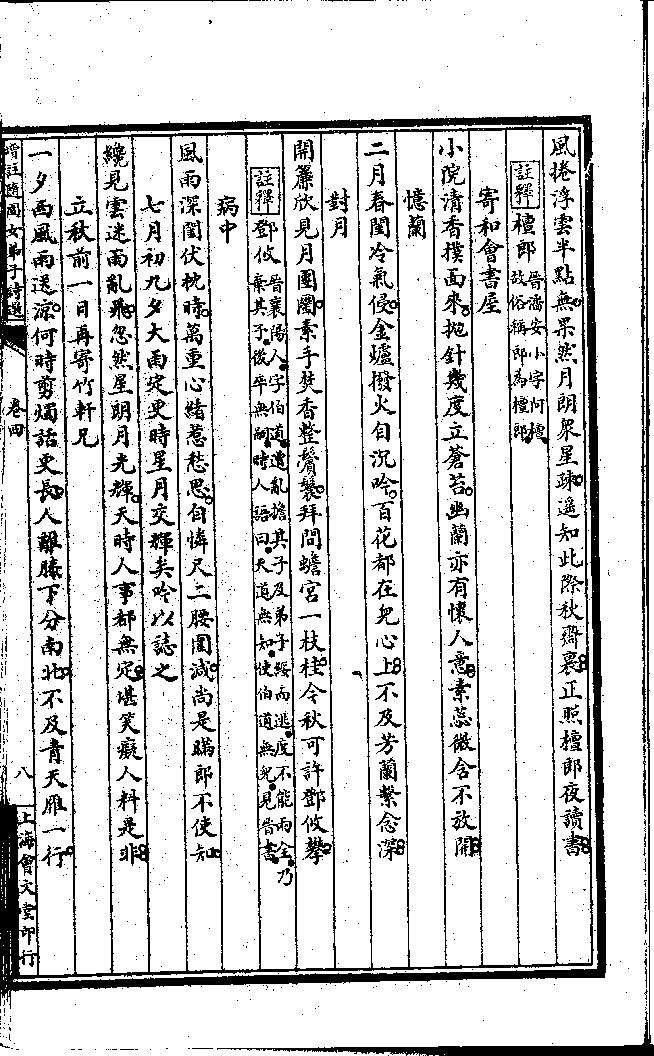 風捲浮雲半點無果然月朗衆星疎遥知此際秋齋裏正照檀郎夜讀書
註釋 檀郎 晉潘安小字阿檀
故俗稱郎為檀郎
寄和會書屋
小院清香撲面來抛針幾度立蒼苔幽蘭亦有懷人意素蕊微含不放開
憶蘭
二月春閨冷氣侵金爐撥火自沉吟百花都在兒心上不及芳蘭繫念深
對月
開簾欣見月團圞素手焚香整鬢鬟拜問蟾宫一枝桂今秋可許鄧攸攀
註釋 鄧攸 晉襄陽人字伯道遭亂擔其子及弟子綏而逃度不能兩全乃
棄其子後卒無嗣時人語曰天道無知使伯道無兒見晉書
病中
風雨深閨伏枕時萬重心緒惹愁思自憐尺二腰圍減尚是瞞郎不使知
七月初九夕大雨定更時星月交輝矣吟以誌之
纔見雲迷雨亂飛忽然星朗月光輝天時人事都無定堪笑癡人料是非
立秋前一日再寄竹軒兄
一夕西風雨送涼何時剪燭話更長人離膝下分南北不及青天雁一行
增註隨園女弟子詩選
卷四
八
上海會文堂印行